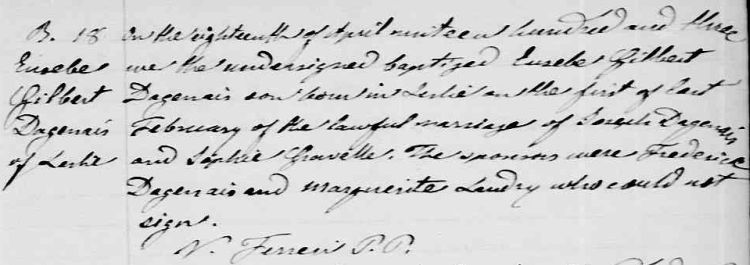 B. 18
Eusebe
Gilbert
Dagenais
of Leslie
On the eighteenth of April nineteen hundred and three
we the undersigned baptized Eusebe Gilbert
Dagenais son born in Leslie on the first of last
February of the lawful marriage of Joseph Dagenais
and Sophie Gravelle. The sponsors were Frederick
Dagenais and Marguerite Landry who could not
sign.
N. Ferreri P.P.